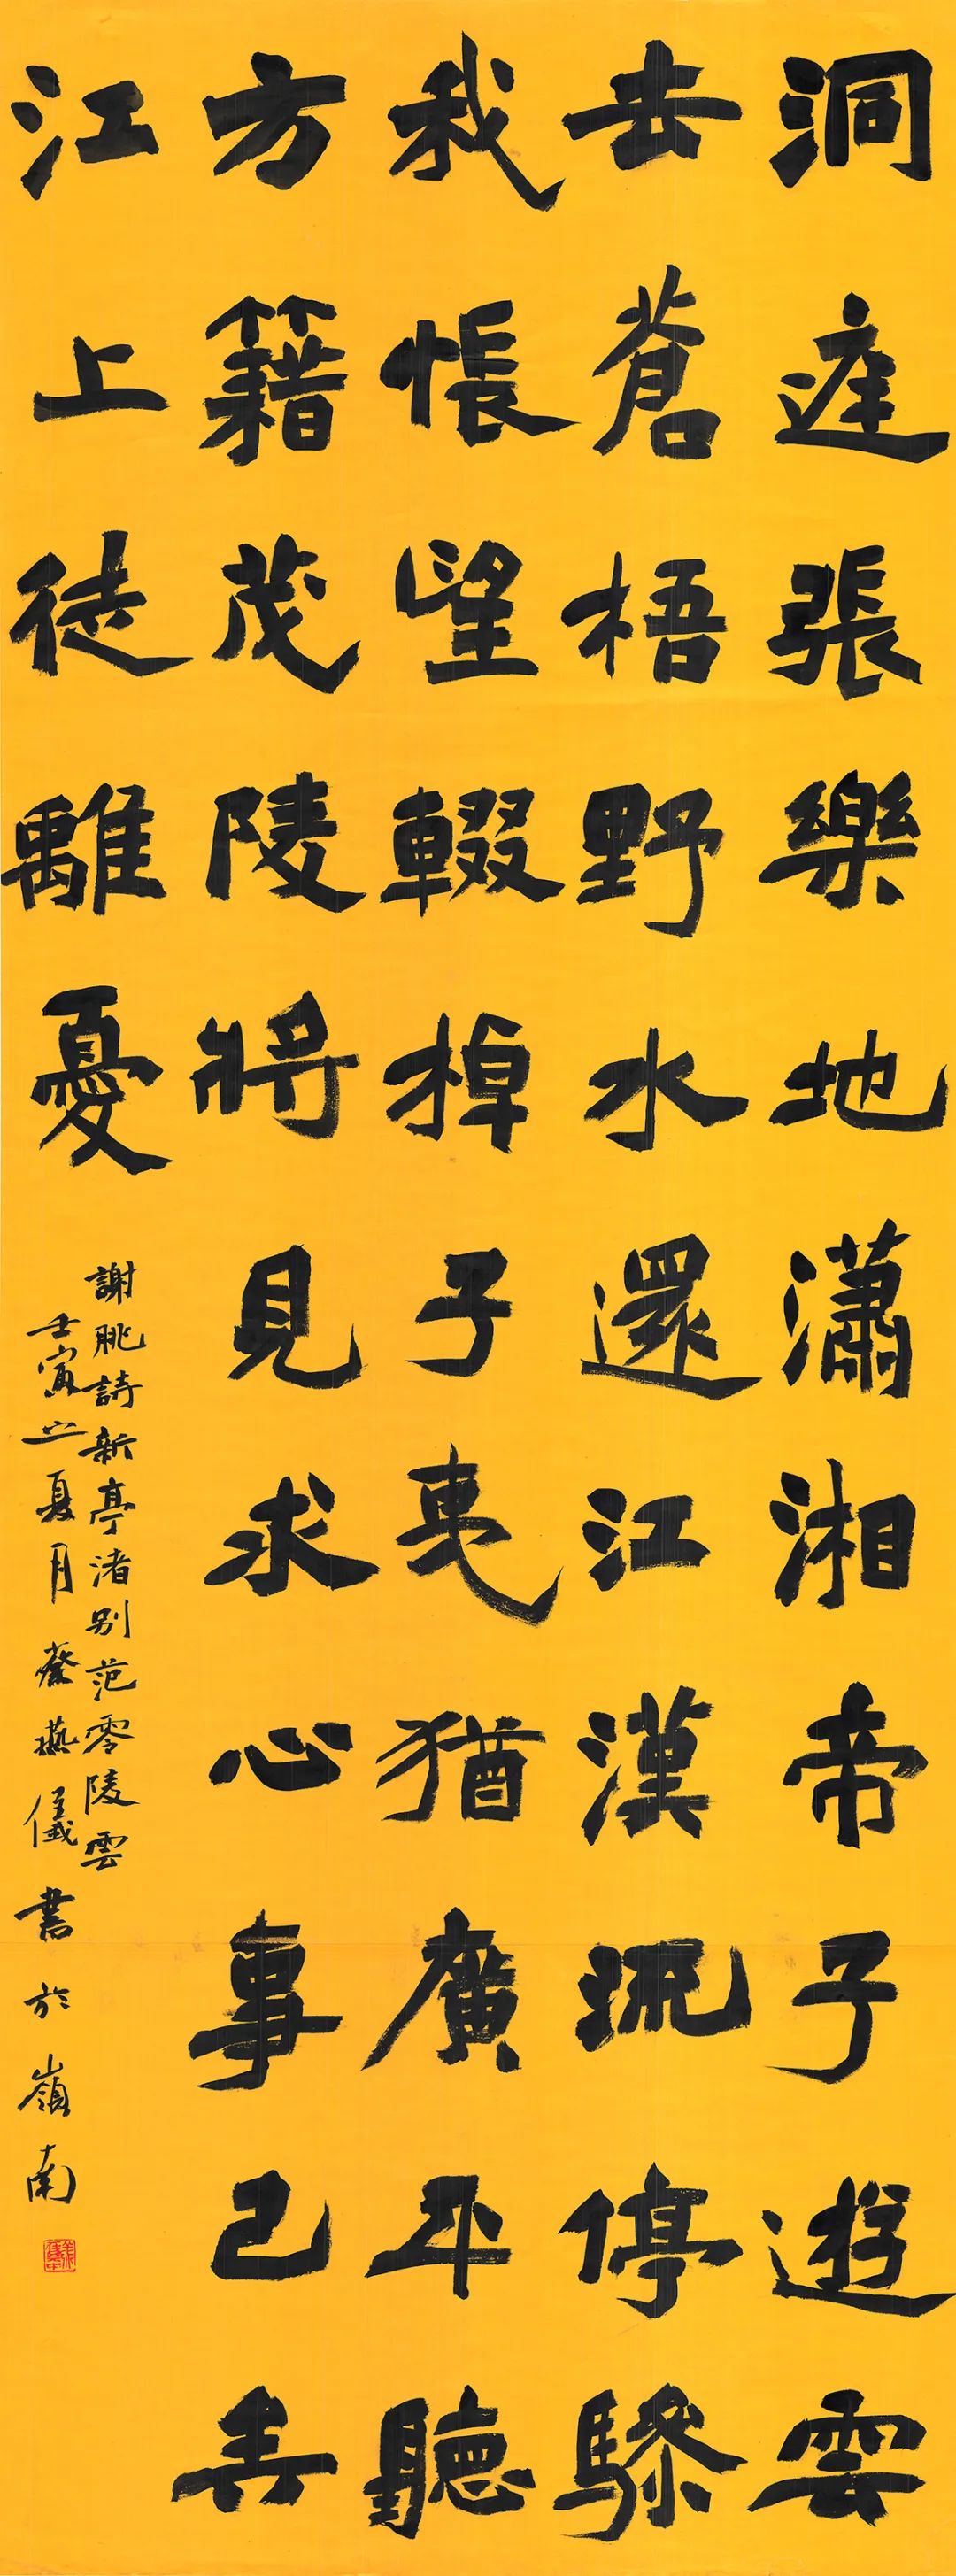 洞庭張樂地瀟湘帝子遊雲
去蒼梧野水還江漢流停驂
我悵望輟棹子夷猶廣平聽
方籍茂陵將見求心事已矣
江上徒離憂
謝朓詩新亭渚別范零陵雲
壬寅之夏月蔡燕儀書於嶺南